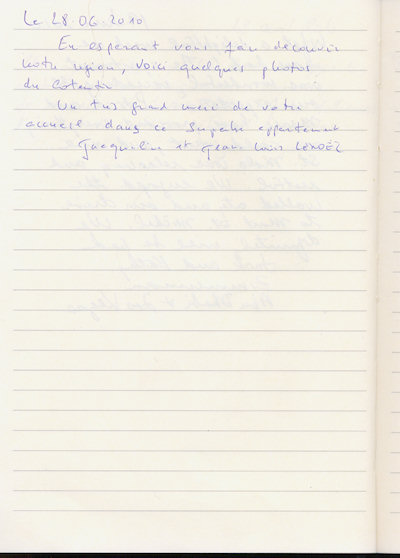 Le 28.06.2010
En espérant vous faire découvrir
notre région, voici quelques photos
du Cotentin
Un très grand merci de votre
accueil dans ce superbe appartement
Jacqueline et Jean Louis